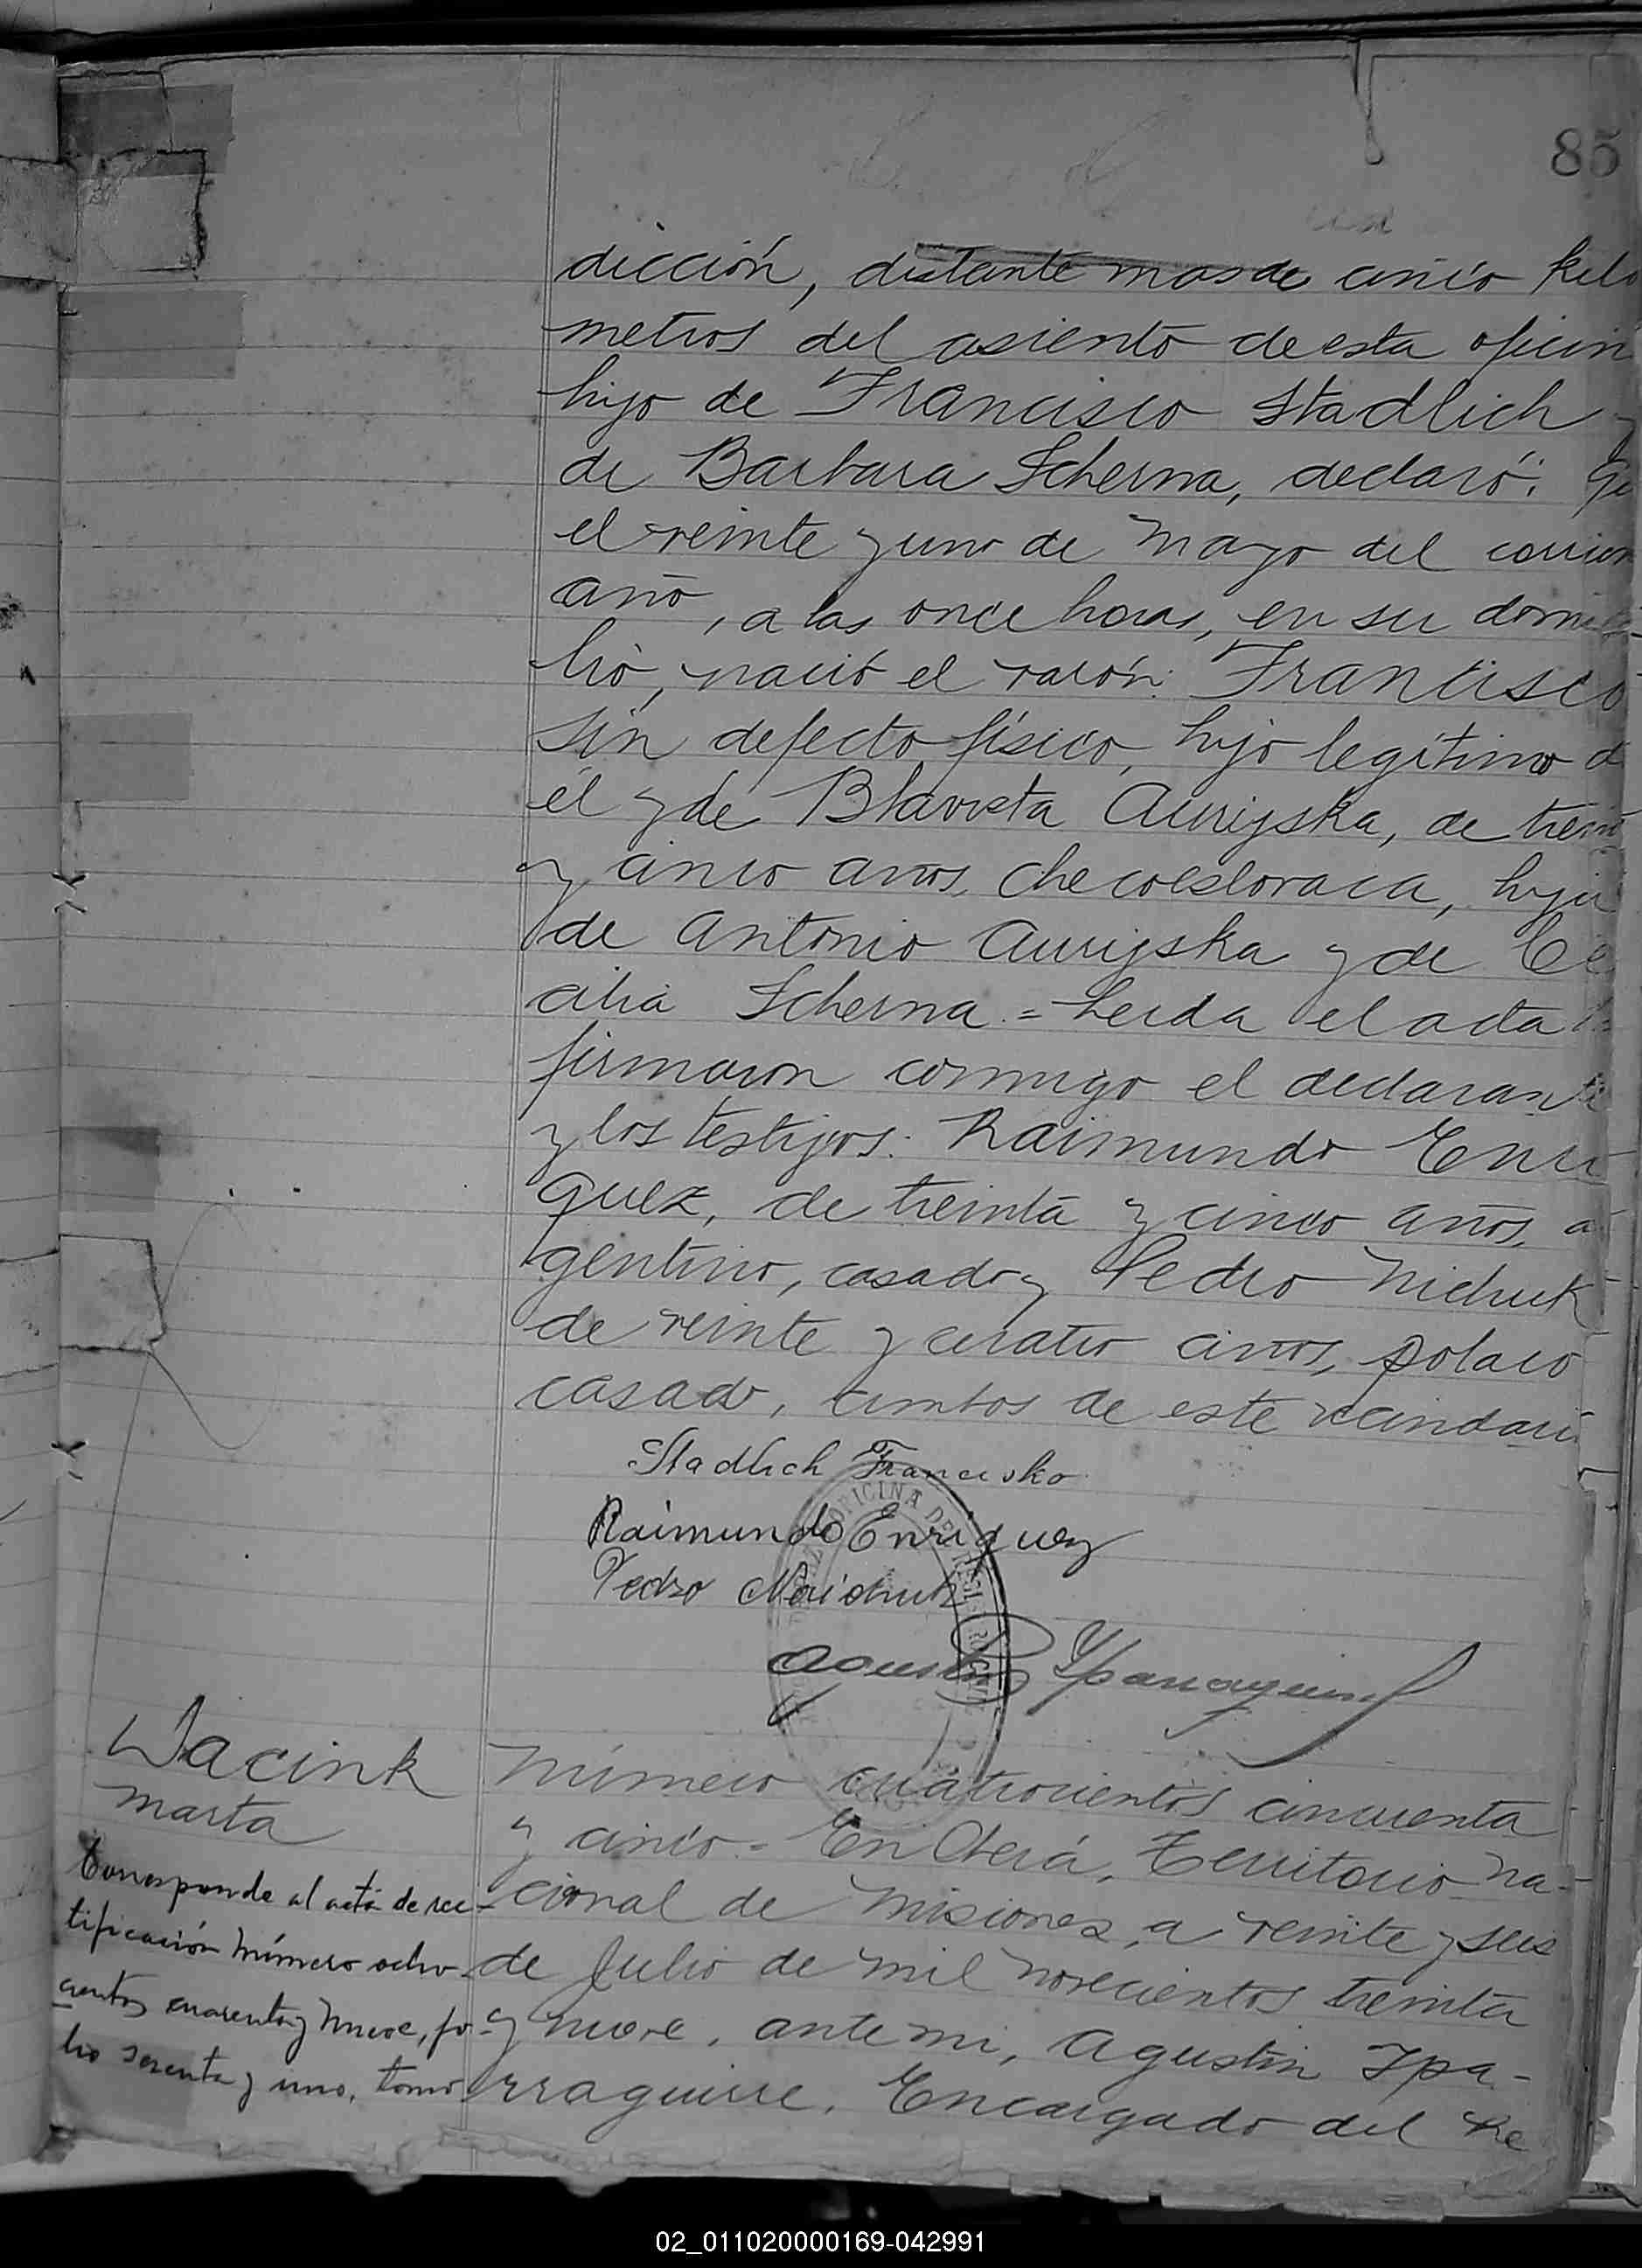 85
dicción, distante mas de cinco kilo
metros del asiento de esta oficin
hijo de Francisco Stadlich y
de Barbara Scherna, declaró: Qu
el veinte y uno de Mayo del corrien
año, a las once horas, en su domici
lio, nació el varón: Francisco
sin defecto físico, hijo legítimo d
él y de Blavosta Aurijska, de trein
y cinco años, checoeslovaca, hija
de Antonio Aurijska y de Ce
cilia Scherna. = Leida el acta la
firmaron conmigo el declarante
y los testigos: Raimundo Enri
quez, de treinta y cinco años, ar
gentino, casado y Pedro Nichuk
de veinte y cuatro años, polaco
casado, ambos de este vecindari
Stadlich Francisko
Raimundo Enriquez
Pedro Naichuk
OFICINA DEL
Agustin Yparraguirre
Wacink
Marta
Corresponde al acta de rec-
tificación número ocho-
cientos cuarenta y nueve, fo-
lio sesenta y uno, tomo
Número cuatrocientos cincuenta
y cinco. = En Oberá, Territorio Na-
cional de Misiones, a veinte y seis
de Julio de mil novecientos treinta
y nueve, ante mi, Agustin Ipa-
rraguirre, Encargado del Re
02_011020000169-042991